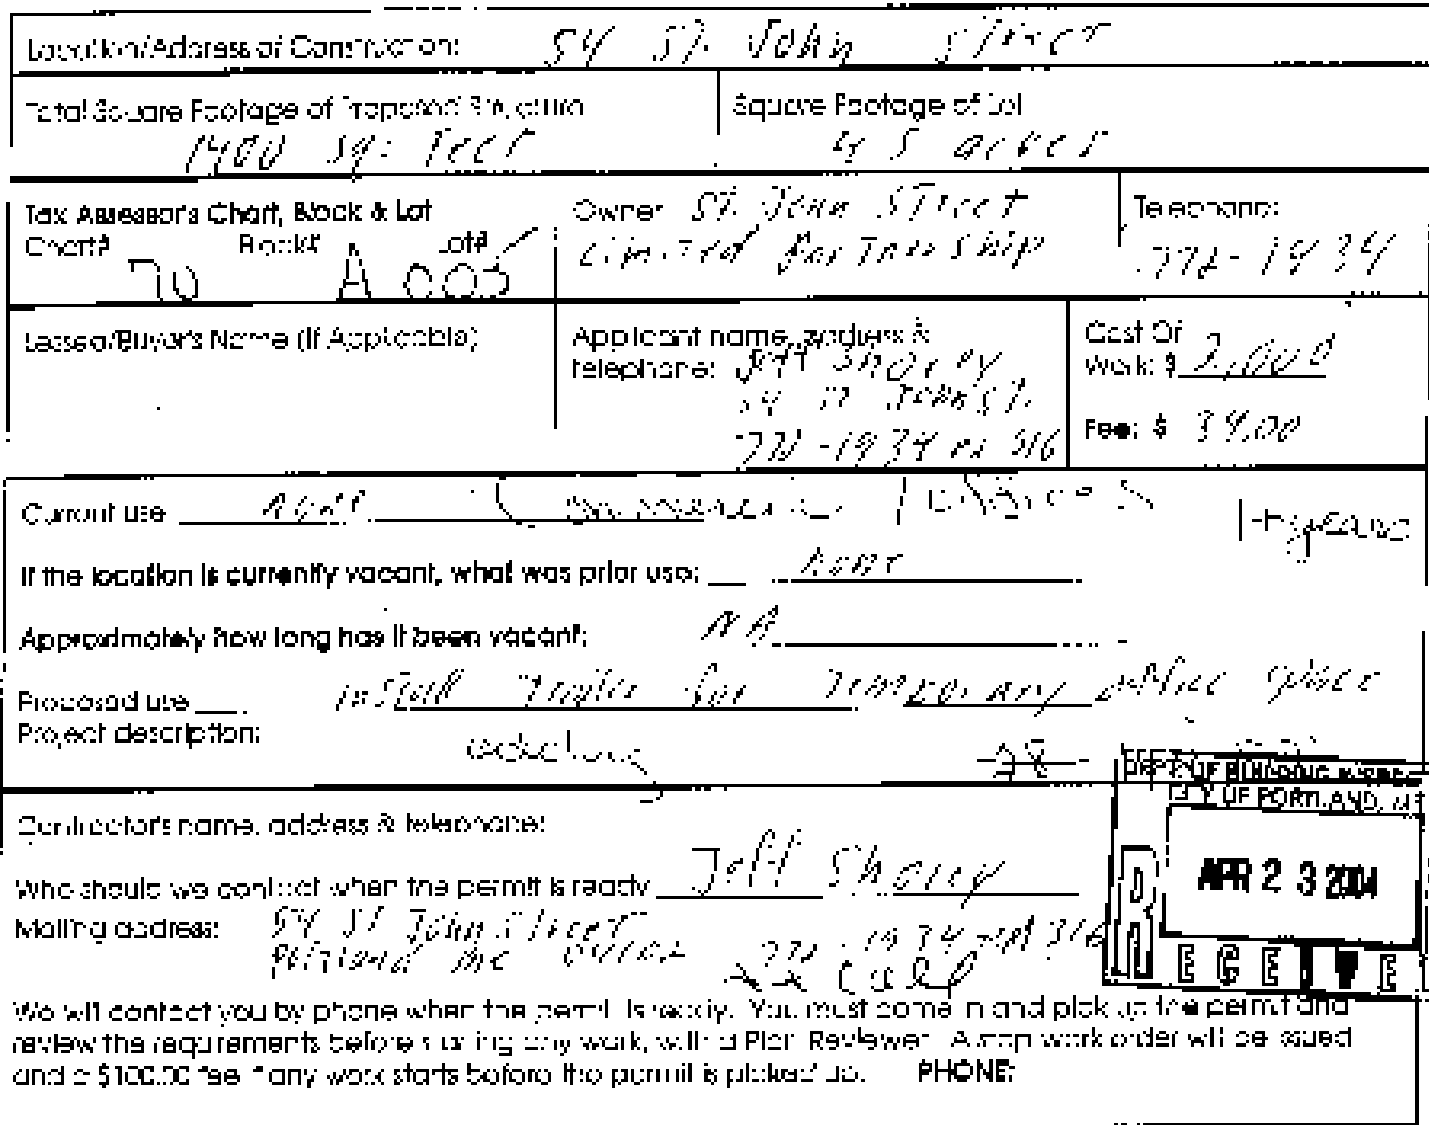 Location/Address of Construction: 54 St. John Street
Total Square Footage of Proposed Structure Square Footage of Lot
1400 sq. feet 4.5 acres
Tax Assessor's Chart, Block & Lot Owner: St. John Street Telephone:
Chart# Block# Lot# Limited Partnership 772-1434
70 A 003
Lessee/Buyer's Name (If Applicable) Applicant name, address & Cost Of
telephone: Jeff Shorey Work: $ 2,000
54 St John St.
Fee: $ 39.00
Current use
If the location is currently vacant, what was prior use:
Approximately how long has it been vacant: NA
Proposed use install Trailer for Temporary office space
Project description:
DEPT. OF BUILDING
CITY OF PORTLAND, ME
Contractor's name, address & telephone:
APR 23 2004
Who should we contact when the permit is ready Jeff Shorey
Mailing address: 54 St John Street
Portland Me
RECEIVE
We will contact you by phone when the permit is ready. You must come in and pick up the permit and
review the requirements before starting any work, with a Plan Reviewer. A stop work order will be issued
and a $100.00 fee if any work starts before the permit is picked up. PHONE: